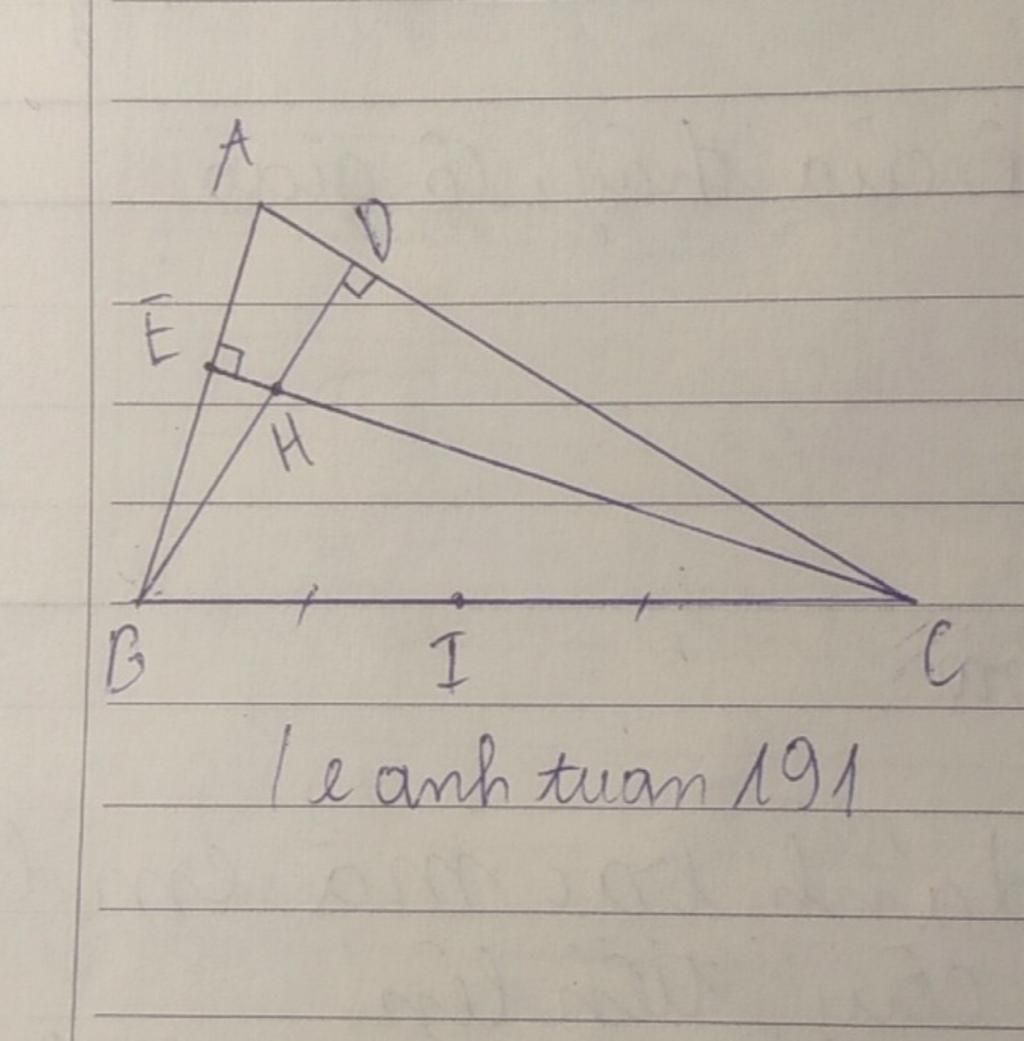 A
D
E
H
B I C
le anh tuan 191